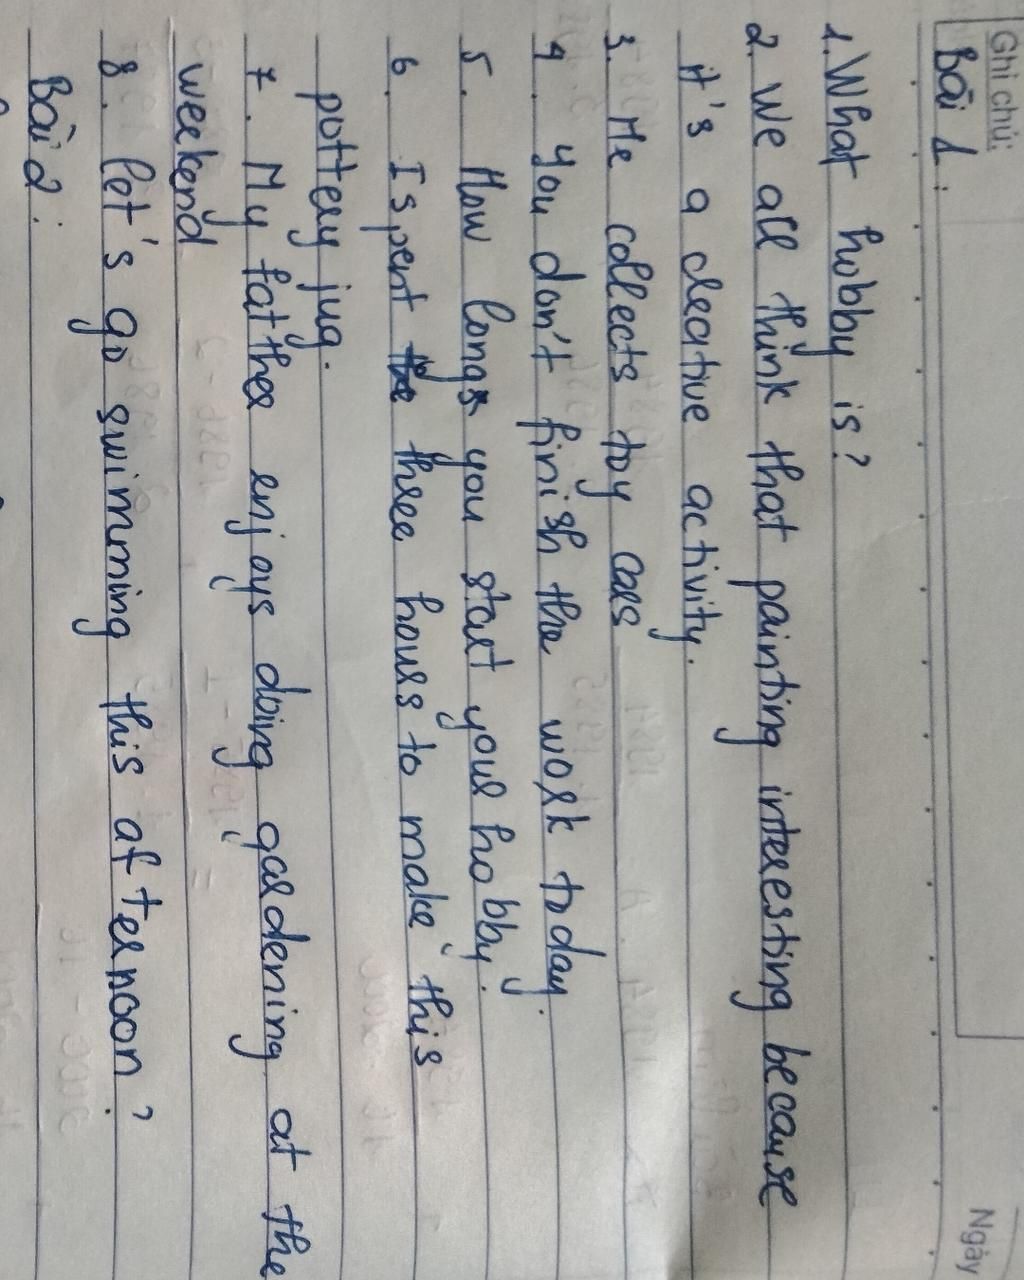 Ghi chú:
Ngày
Bài 1:
1. What hobby is?
2. We all think that painting interesting because
it's a creative activity.
3. He collects toy cars
4. You don't finish the work today.
5. How long you start your hobby.
6. I spent three hours to make this
pottery jug.
7. My father enjoys doing gardening at the
weekend
8. let's go swimming this afternoon?
Bài 2: